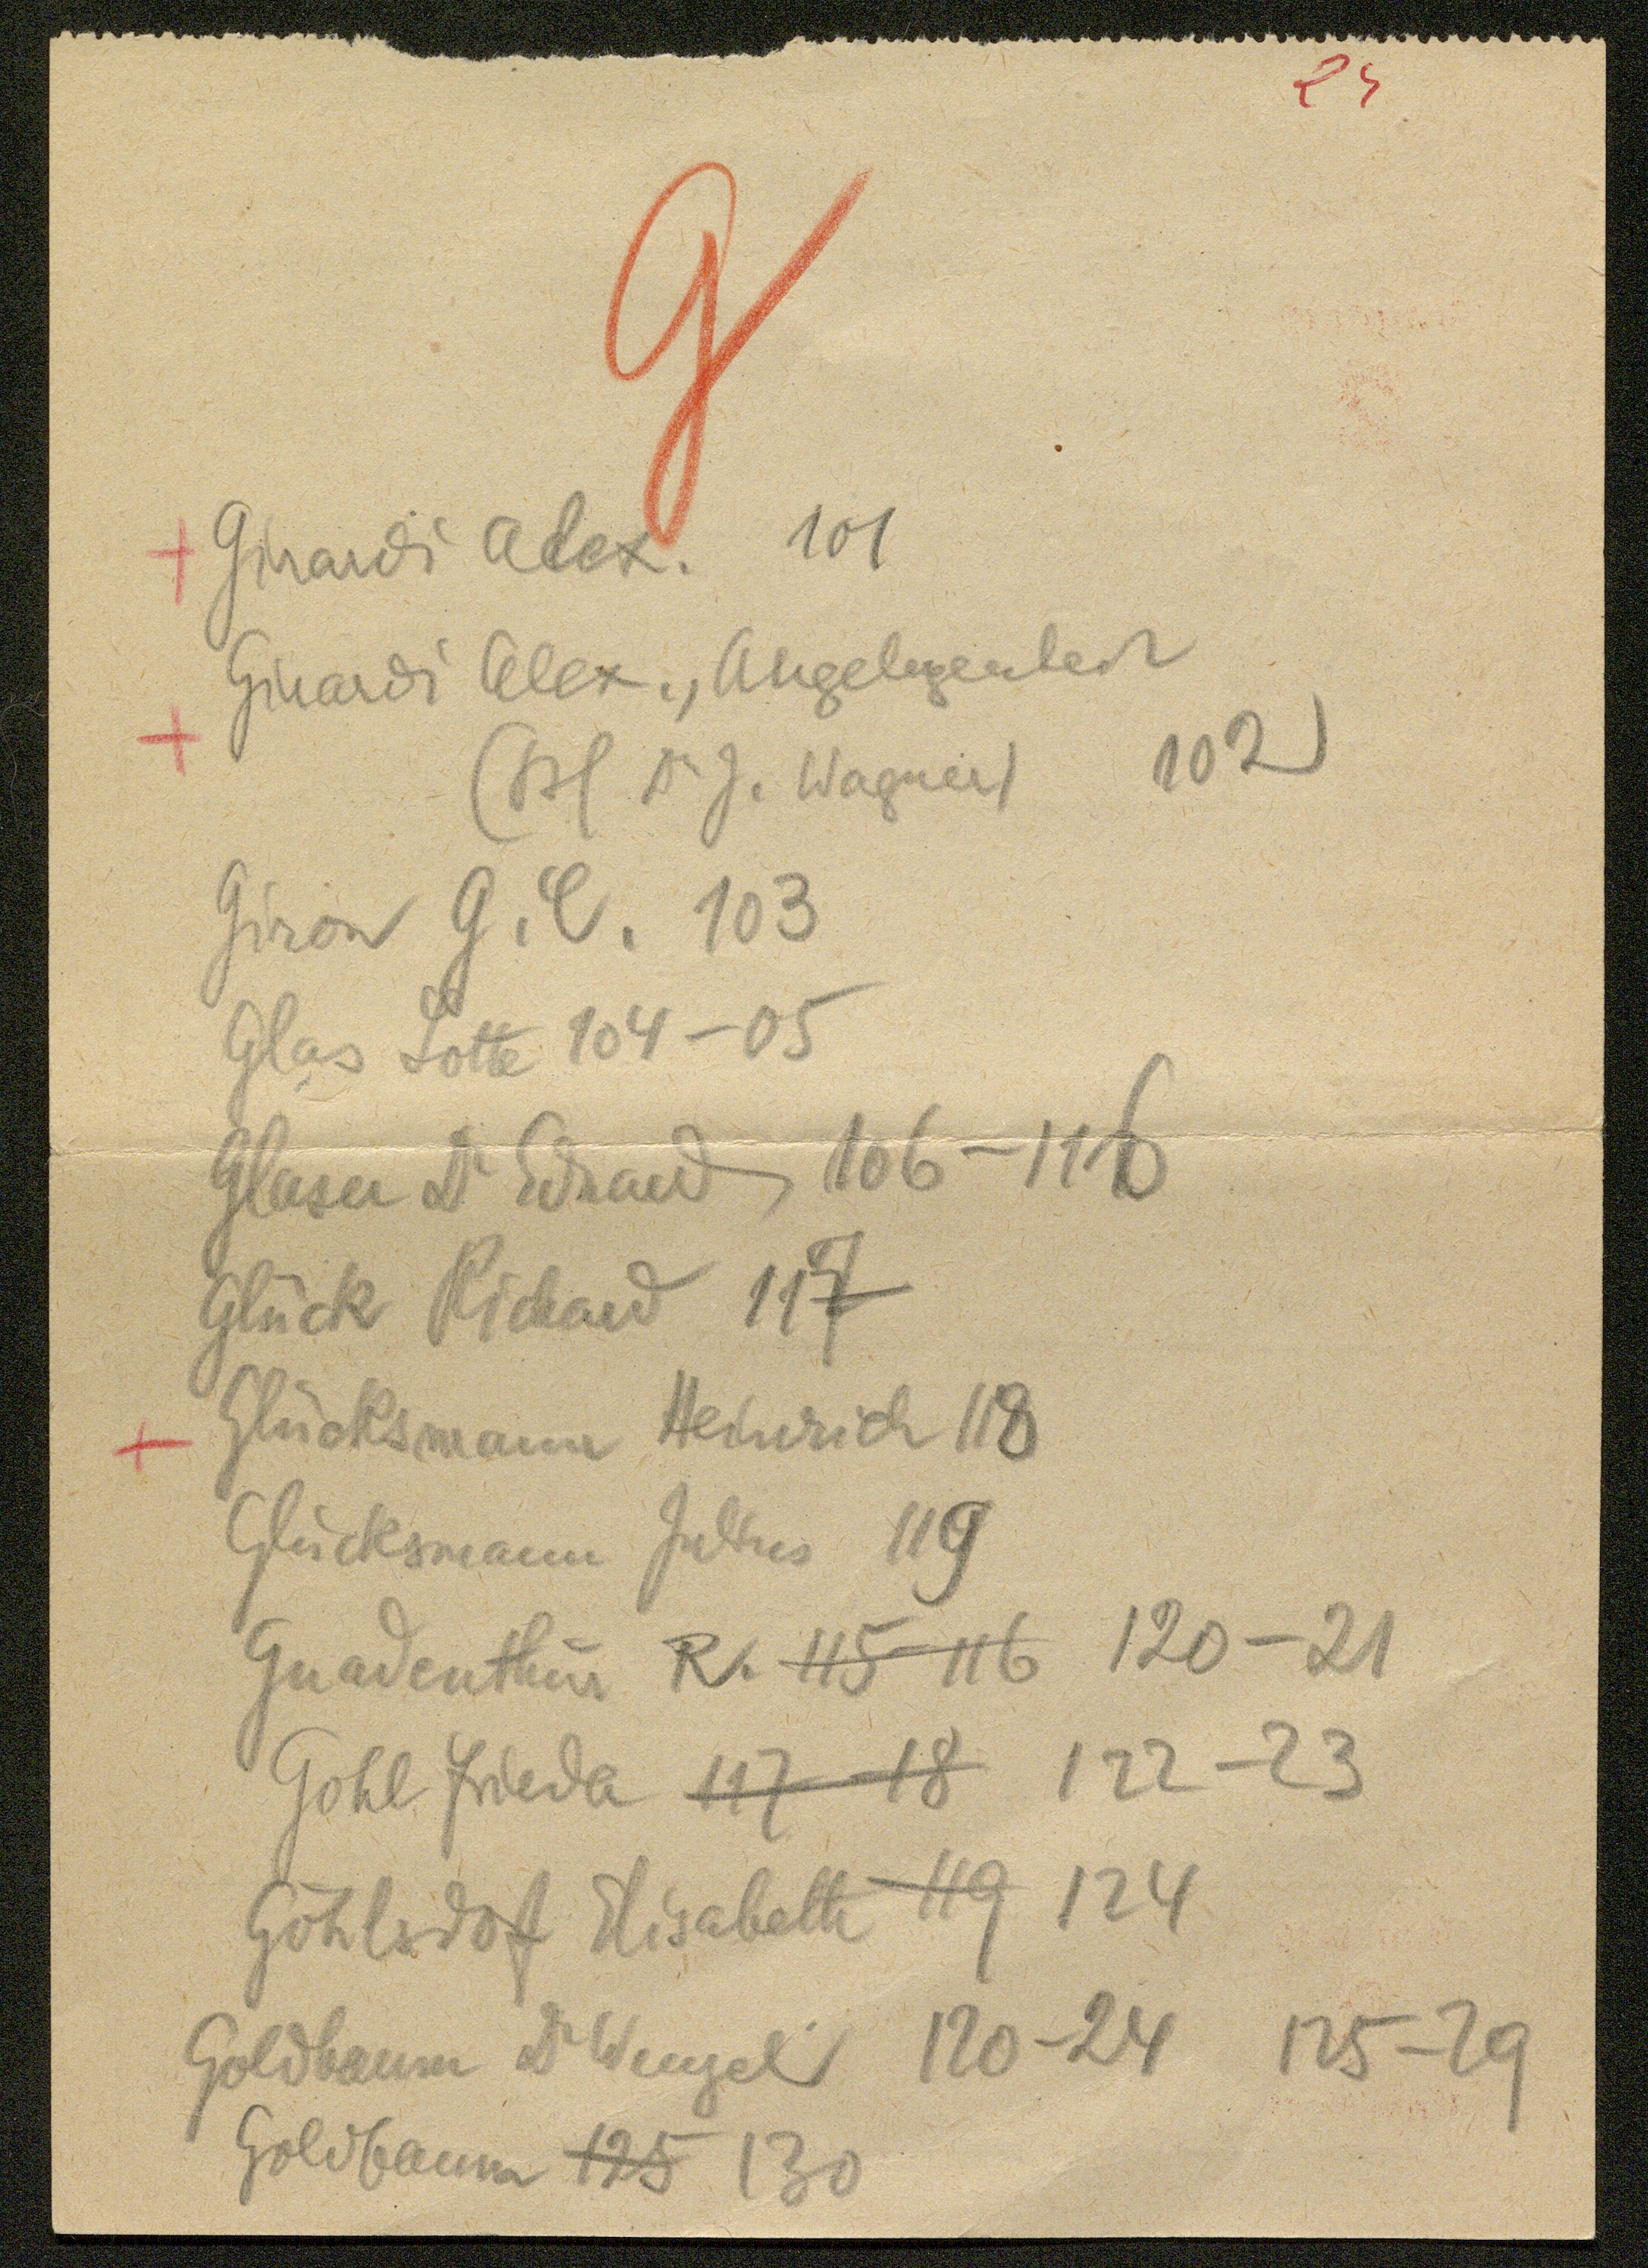 G
+ Girardi Alex. 101
Girardi Alex., Angelegenheit
+ ( Dr J. Wagner) 102
Giron G. C. 103
Glas Lotte 104-05
Glaser Dr Eduard, 106-116
Glück Richard 117
+ Glücksmann Heinrich 118
Glücksmann Julius 119
Gnadenthür R. 115-116 120-21
Gohl Frieda 117-18 122-23
Göhlsdorf Elisabeth 119 124
Goldbaum Dr Wenzel 120-24 125-29
Goldbaum 125 130